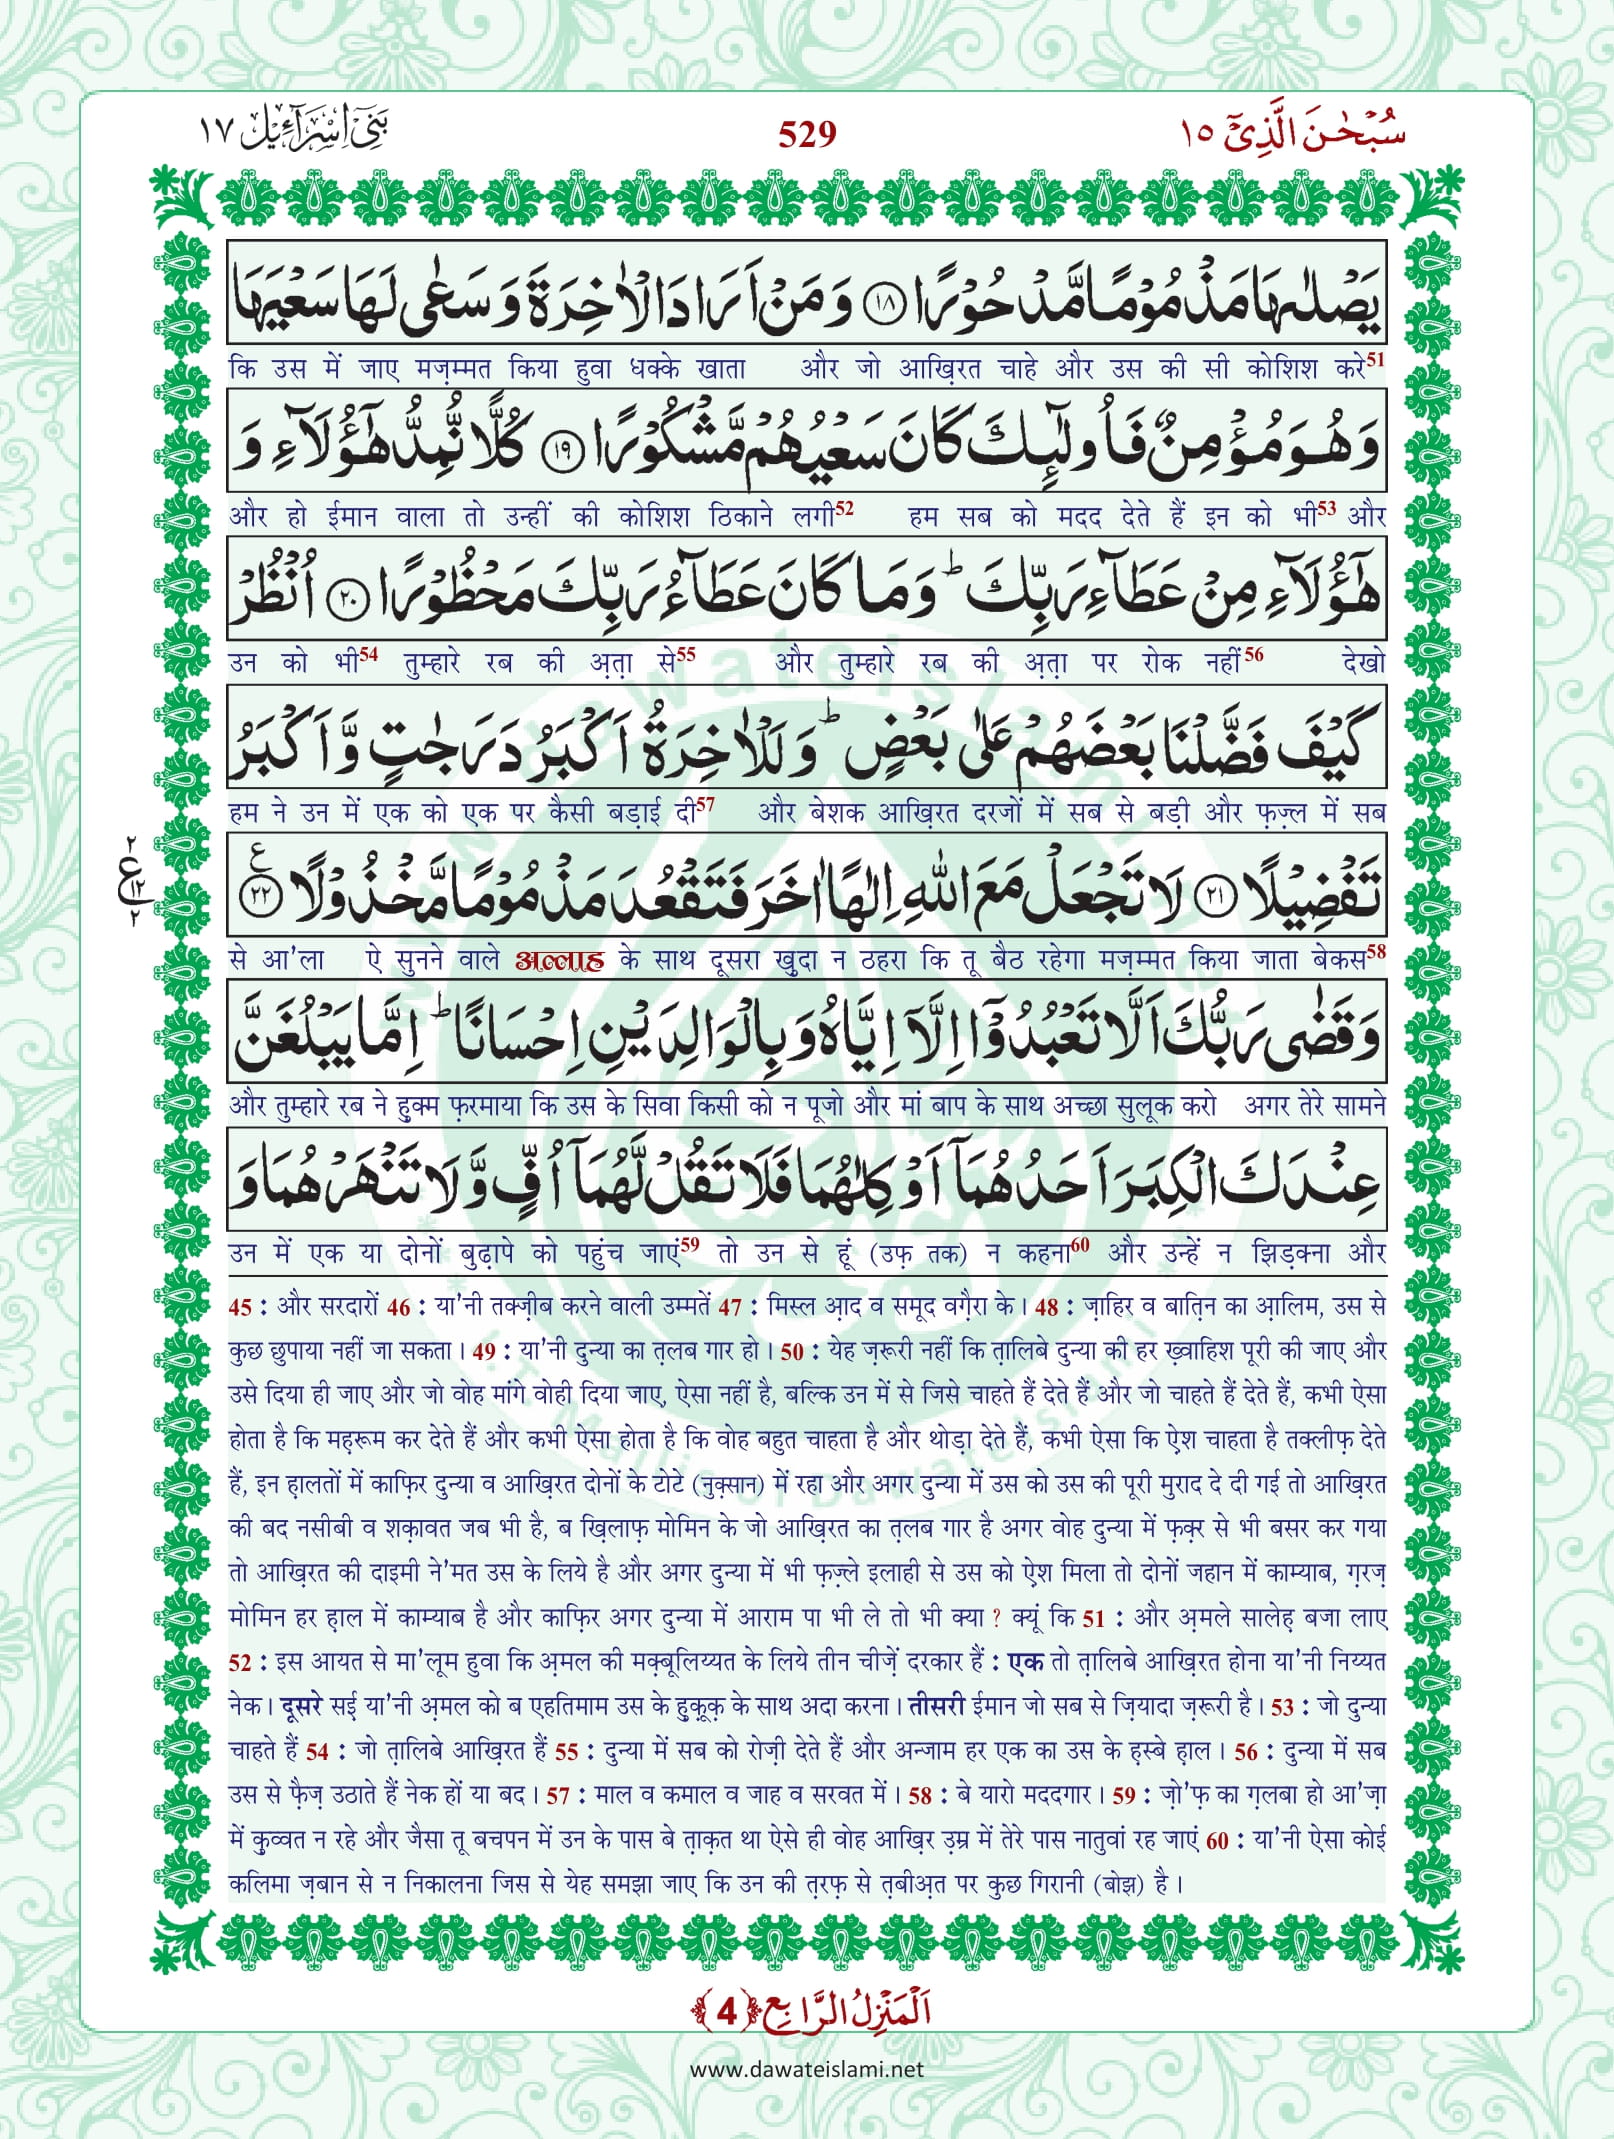 سُبۡحٰنَ الَّذِیۡۤ ١٥
529
بَنِیۡۤ اِسۡرَآءِیۡل ١٧
یَصۡلٰىہَا مَذۡمُوۡمًا مَّدۡحُوۡرًا ﴿۱۸﴾ وَ مَنۡ اَرَادَ الۡاٰخِرَۃَ وَ سَعٰی لَہَا سَعۡیَہَا
कि उस में जाए मज़म्मत किया हुवा धक्के खाता और जो आख़िरत चाहे और उस की सी कोशिश करे51
وَ ہُوَ مُؤۡمِنٌ فَاُولٰٓئِکَ کَانَ سَعۡیُہُمۡ مَّشۡکُوۡرًا ﴿۱۹﴾ کُلًّا نُّمِدُّ ہٰۤؤُلَآءِ وَ
और हो ईमान वाला तो उन्हीं की कोशिश ठिकाने लगी52 हम सब को मदद देते हैं इन को भी53 और
ہٰۤؤُلَآءِ مِنۡ عَطَآءِ رَبِّکَ ؕ وَ مَا کَانَ عَطَآءُ رَبِّکَ مَحۡظُوۡرًا ﴿۲۰﴾ اُنۡظُرۡ
उन को भी54 तुम्हारे रब की अ़त़ा से55 और तुम्हारे रब की अ़त़ा पर रोक नहीं56 देखो
کَیۡفَ فَضَّلۡنَا بَعۡضَہُمۡ عَلٰی بَعۡضٍ ؕ وَ لَلۡاٰخِرَۃُ اَکۡبَرُ دَرَجٰتٍ وَّ اَکۡبَرُ
हम ने उन में एक को एक पर कैसी बड़ाई दी57 और बेशक आख़िरत दरजों में सब से बड़ी और फ़ज़्ल में सब
تَفۡضِیۡلًا ﴿۲۱﴾ لَا تَجۡعَلۡ مَعَ اللّٰہِ اِلٰـہًا اٰخَرَ فَتَقۡعُدَ مَذۡمُوۡمًا مَّخۡذُوۡلًا ﴿۲۲﴾ ع
٢ ع ١٢ ٢
से आ'ला ऐ सुनने वाले अल्लाह के साथ दूसरा खुदा न ठहरा कि तू बैठ रहेगा मज़म्मत किया जाता बेकस58
وَ قَضٰی رَبُّکَ اَلَّا تَعۡبُدُوۡۤا اِلَّاۤ اِیَّاہُ وَ بِالۡوَالِدَیۡنِ اِحۡسَانًا ؕ اِمَّا یَبۡلُغَنَّ
और तुम्हारे रब ने हुक्म फ़रमाया कि उस के सिवा किसी को न पूजो और मां बाप के साथ अच्छा सुलूक करो अगर तेरे सामने
عِنۡدَکَ الۡکِبَرَ اَحَدُہُمَاۤ اَوۡ کِلٰہُمَا فَلَا تَقُلۡ لَّہُمَاۤ اُفٍّ وَّ لَا تَنۡہَرۡہُمَا وَ
उन में एक या दोनों बुढ़ापे को पहुंच जाएं59 तो उन से हूं (उफ़ तक) न कहना60 और उन्हें न झिड़क्ना और
45 : और सरदारों 46 : या'नी तक्ज़ीब करने वाली उम्मतें 47 : मिस्ल आ़द व समूद वग़ैरा के। 48 : ज़ाहिर व बातिन का आ़लिम, उस से
कुछ छुपाया नहीं जा सकता। 49 : या'नी दुन्या का त़लब गार हो। 50 : येह ज़रूरी नहीं कि त़ालिबे दुन्या की हर ख़्वाहिश पूरी की जाए और
उसे दिया ही जाए और जो वोह मांगे वोही दिया जाए, ऐसा नहीं है, बल्कि उन में से जिसे चाहते हैं देते हैं और जो चाहते हैं देते हैं, कभी ऐसा
होता है कि मह़रूम कर देते हैं और कभी ऐसा होता है कि वोह बहुत चाहता है और थोड़ा देते हैं, कभी ऐसा कि ऐश चाहता है तक्लीफ़ देते
हैं, इन ह़ालतों में काफ़िर दुन्या व आख़िरत दोनों के टोटे (नुक़्सान) में रहा और अगर दुन्या में उस को उस की पूरी मुराद दे दी गई तो आख़िरत
की बद नसीबी व शक़ावत जब भी है, ब ख़िलाफ़ मोमिन के जो आख़िरत का त़लब गार है अगर वोह दुन्या में फ़क़्र से भी बसर कर गया
तो आख़िरत की दाइमी ने'मत उस के लिये है और अगर दुन्या में भी फ़ज़्ले इलाही से उस को ऐश मिला तो दोनों जहान में काम्याब, ग़रज़
मोमिन हर ह़ाल में काम्याब है और काफ़िर अगर दुन्या में आराम पा भी ले तो भी क्या ? क्यूं कि 51 : और अ़मले सालेह़ बजा लाए
52 : इस आयत से मा'लूम हुवा कि अ़मल की मक़्बूलिय्यत के लिये तीन चीज़ें दरकार हैं : एक तो त़ालिबे आख़िरत होना या'नी निय्यत
नेक। दूसरे सई या'नी अ़मल को ब एहतिमाम उस के हुक़ूक़ के साथ अदा करना। तीसरी ईमान जो सब से ज़ियादा ज़रूरी है। 53 : जो दुन्या
चाहते हैं 54 : जो त़ालिबे आख़िरत हैं 55 : दुन्या में सब को रोज़ी देते हैं और अन्जाम हर एक का उस के ह़स्बे ह़ाल। 56 : दुन्या में सब
उस से फ़ैज़ उठाते हैं नेक हों या बद। 57 : माल व कमाल व जाह व सरवत में। 58 : बे यारो मददगार। 59 : ज़ो'फ़ का ग़लबा हो आ'ज़ा
में क़ुव्वत न रहे और जैसा तू बचपन में उन के पास बे त़ाक़त था ऐसे ही वोह आख़िर उ़म्र में तेरे पास नातुवां रह जाएं 60 : या'नी ऐसा कोई
कलिमा ज़बान से न निकालना जिस से येह समझा जाए कि उन की त़रफ़ से त़बीअ़त पर कुछ गिरानी (बोझ) है।
اَلۡمَنۡزِلُ الرَّابِع ﴿4﴾
www.dawateislami.net